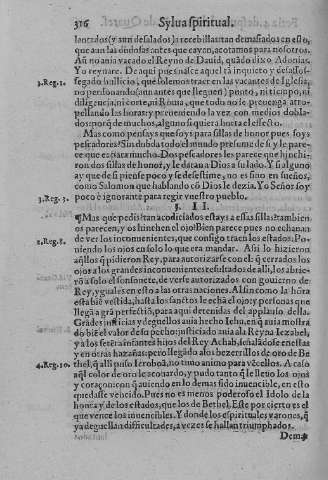 316 Sylua spiritual.
lentados (y aun desalados) a recebillas tan demasiado en esto,
que aun las dudosas antes que cayen, acotamos para nosotros.
Aũ no ania vacado el Reyno de Dauid, quãdo dixo Adonias.
3.Reg.1. Yo reynare. De aqui pues nasce aquel tã inquieto y desassos-
segado bullicio, que lamentos traer en las vacantes de Iglesia,
no personando (aun antes que lleguen) punto, ni tiempo, ni
diligencia, ni corte, ni Roma, que todo no le preuenga atro-
pellando las horas y preueniendo la vez con medios dobla-
dos: porq̃ de muchos, alguno siquiera hurta el efecto.
Mas como pensays que soys para sillas de honor pues soys
pescadores? Sin dubda todo el mundo presume de si y le pare-
ce que exciata mucho. Dos pescadores les parece que hinchi-
ron dos sillas de honor, y le dauan a Dios a su lado. Y si alguno
ay que de si piense poco y se desestime, no es sino en sueños,
como Salomon que hablando cõ Dios le dezia. Yo Señor soy
3.Reg.3. poco è ignorante para regir vuestro pueblo.
§. II.
¶ Mas què pedis tan acodiciados estays a essas sillas? tambien
os parecen, y os hinchen el ojo? Bien parece pues no echan
2.Reg.8. de ver los inconuenientes, que consigo traen los estados. Po-
niendo los ojos en solo lo que era mandar. Assi lo hizieron
aq̃llos q̃ pidieron Rey, para autorizarse con el: q̃ cerrados los
ojos a los grandes inconuenientes resultados de alli, los abrie-
rõ a solo el sonsonete, de verse autorizados con gouierno de
Rey, yguales en esto a las otras naciones. Assi como la hõra
esta biẽ vestida, hasta los sanctos le echã el ojo y personas que
llegã a grã perfectiõ, para aqui detenidas del applauso della.
Grãdes justicias y deguellos auia hecho Iehu, en q̃ auia mostra
dõ biẽ el valor de su pecho: justiciado auia a la Reyna Iezabel,
y a los setẽta infantes hijos del Rey Achab, señaládose en estas
y en otras hazañas: pero llegãdo a los bezerrillos de oro de Be
4.Reg.10. thel, q̃ alli puso Ieroboã, no tuuo animo para vẽcellos. A caso
aq̃l color de oro le acouardo, y pudo tanto q̃ le lleuo los ojos
y coraçon: con q̃ auiendo en lo demas sido inuencible, en esto
quedasse vencido. Pues no es menos poderoso el Idolo de la
honra y de los estados, que los de Bethel. Este por cierto es el
que vence los inuencibles. Y donde los espirituales varones, q̃
ya deguellan difficultades, a vezes se hallan triumphados.
Demas